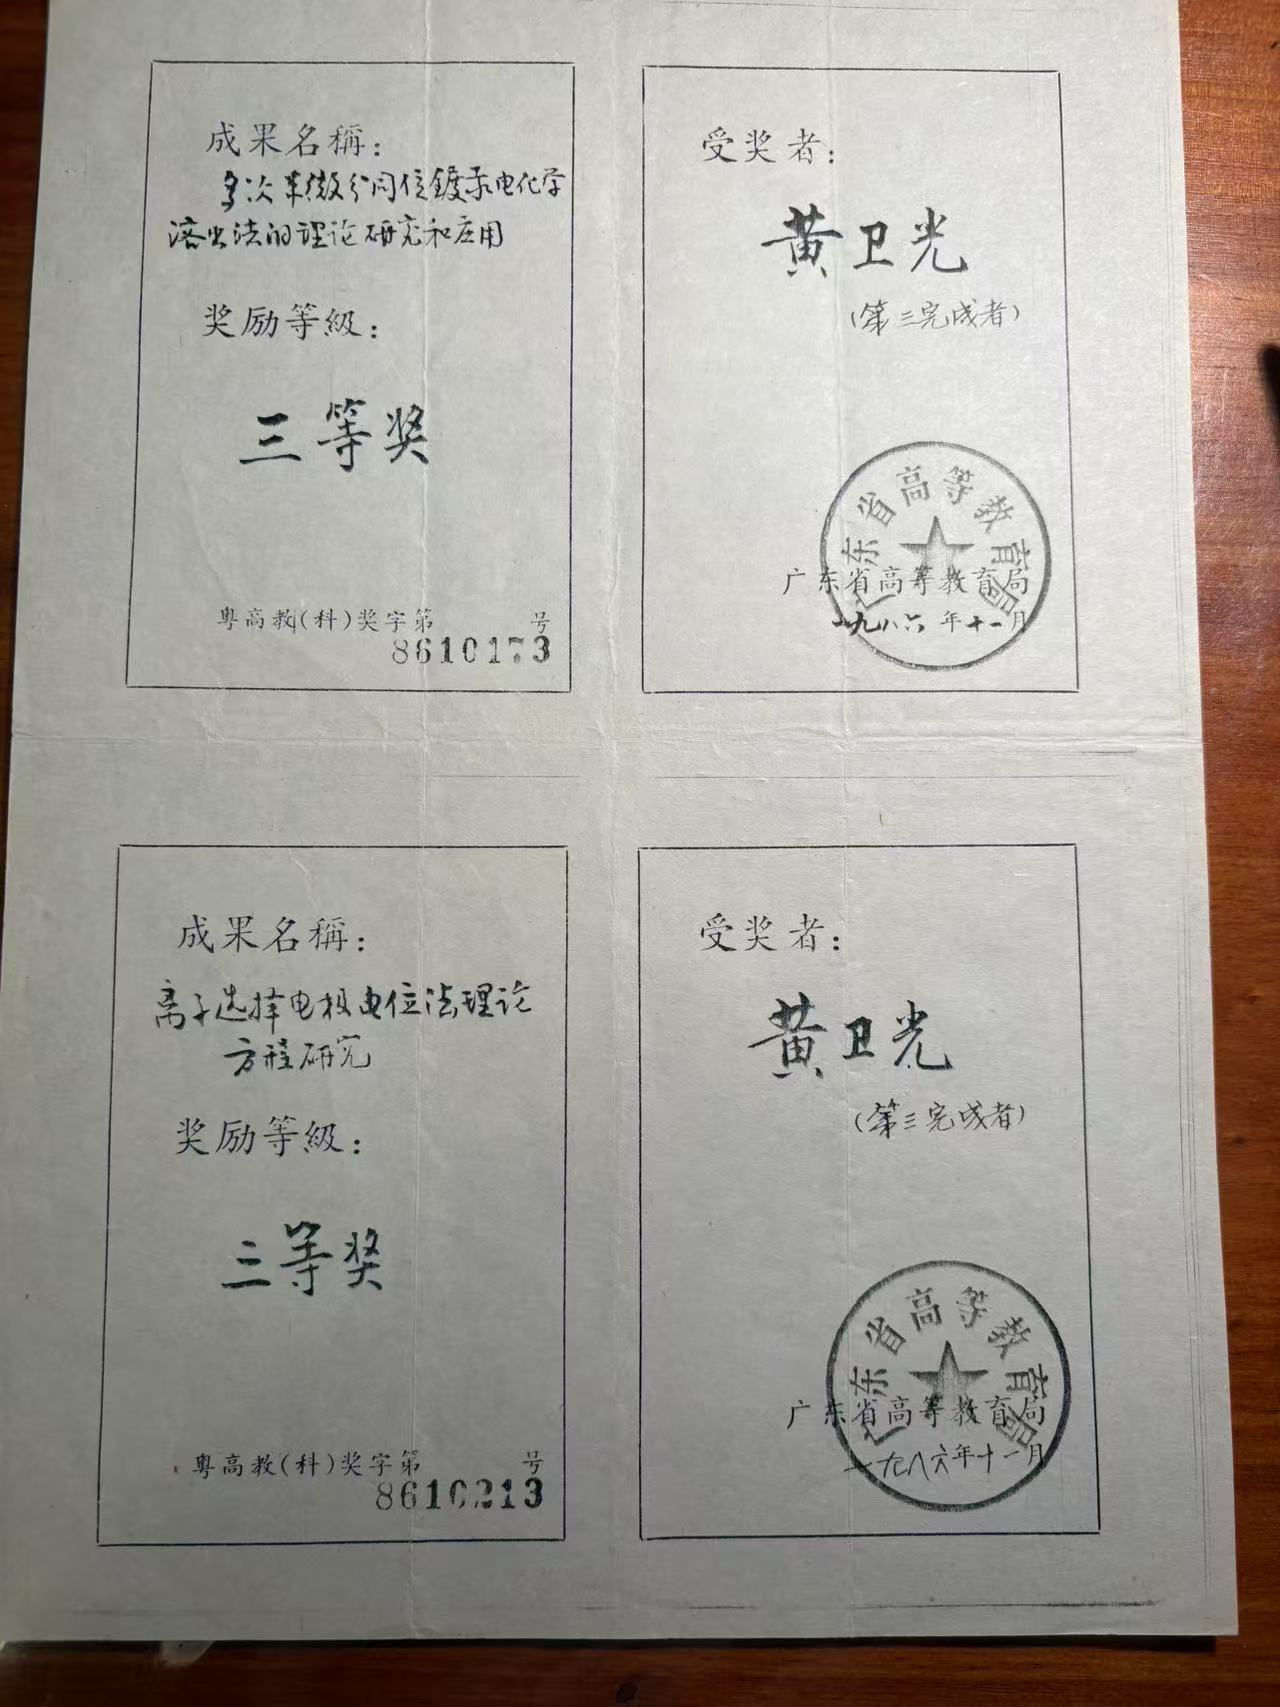 成果名稱：
多次半微分同位镀汞电化学
溶出法的理论研究和应用
奖励等級：
三等奖
粤高教(科)奖字第 号
8610173
受奖者：
黄卫光
(第三完成者)
广东省高等教育局
广东省高等教育局
一九八六年十一月
成果名稱：
离子选择电极电位法理论
方程研究
奖励等級：
三等奖
粤高教(科)奖字第 号
8610213
受奖者：
黄卫光
(第三完成者)
广东省高等教育局
广东省高等教育局
一九八六年十一月